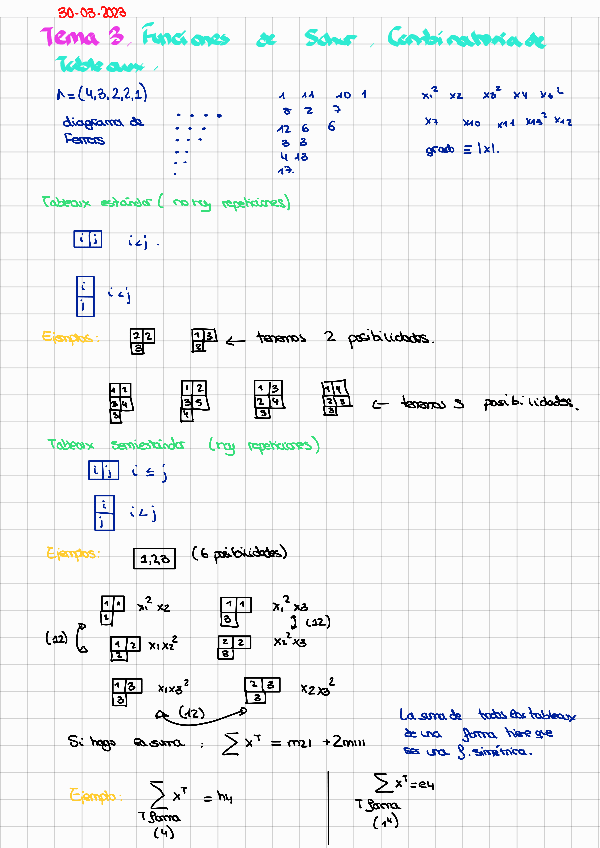 30-03-2023
Tema 3. Funciones de Schur. Combinatoria de
Tableaux.
Λ=(4,3,2,2,1)
diagrama de
Ferrers
1 11 10 1
8 2 7
12 6 6
3 3
4 13
17.
x1² x2 x3² x4 x6²
x7 x10 x11 x13² x12
grado ≡ |λ|.
Tableaux estándar (no hay repeticiones)
i j i<j.
i
j i<j
Ejemplos:
2 2
3
1 3
3
← tenemos 2 posibilidades.
1 2
3 4
3
1 2
3 5
4
1 3
2 4
3
1 4
2 3
3
← tenemos 5 posibilidades.
Tableaux semiestándar (hay repeticiones)
i j i ≤ j
i
j i<j
Ejemplos: 1,2,3 (6 posibilidades)
1 1
2
x1² x2
1 1
3
x1² x3
(12)
(12)
1 2
2
x1x2²
2 2
3
x2² x3
1 3
3
x1x3²
2 3
3
x2x3²
(12)
Si hago esuma: ∑ x^T = m21 + 2m111
La suma de todos los tableaux
de una forma tiene que
ser una f. simétrica.
Ejemplo: ∑ x^T = h4
T forma
(4)
∑ x^T = e4
T forma
(1⁴)